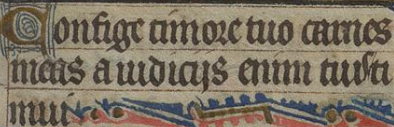 Confige timore tuo carnes
meas a iudicijs enim tuis ti
mui